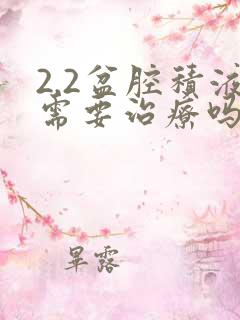 2.2盆腔積液
需要治療吗
旱露